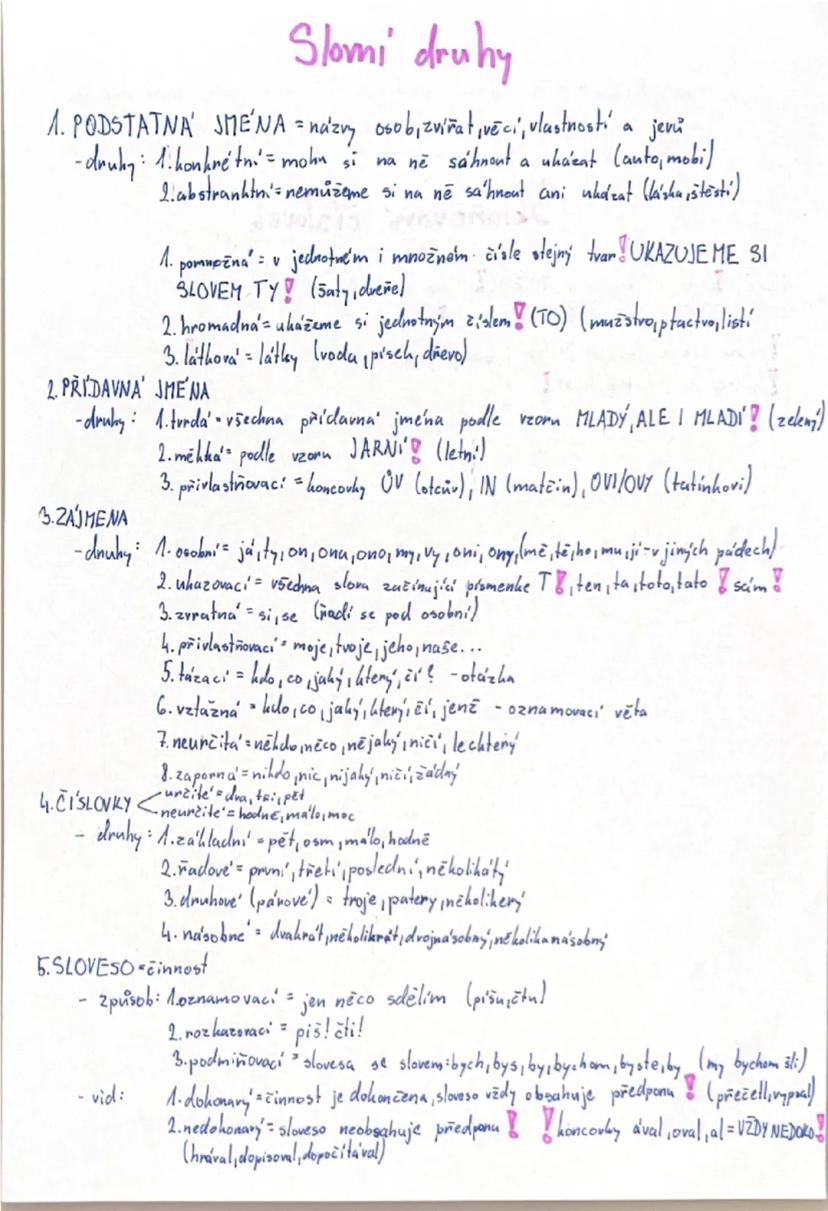 Slovní druhy
1. PODSTATNÁ JMÉNA = názvy osob, zvířat, věcí, vlastností a jevů
- druhy: 1. konkrétní = mohu si na ně sáhnout a ukázat (auto, mobil)
2. abstranktní = nemůžeme si na ně sáhnout ani ukázat (láska, štěstí)
1. pomnožná = v jednotném i množném čísle stejný tvar! UKAZUJEME SI
SLOVEM TY! (šaty, dveře)
2. hromadná = ukážeme si jednotným číslem! (TO) (mužstvo, ptactvo, listí
3. látková = látky (voda, písek, dřevo)
2. PŘÍDAVNÁ JMÉNA
- druhy: 1. tvrdá = všechna přídavná jména podle vzoru MLADÝ, ALE I MLADÍ! (zelený)
2. měkká = podle vzoru JARNÍ! (letní)
3. přivlastňovací = koncovky ŮV (otcův), IN (matčin), OVI/OVY (tatínkovi)
3. ZÁJMENA
- druhy: 1. osobní = já, ty, on, ona, ono, my, vy, oni, ony, (mě, tě, ho, mu, jí = v jiných pádech)
2. ukazovací = všechna slova začínající písmenke T!, ten, ta, toto, tato ! sám !
3. zvratná = si, se (řadí se pod osobní)
4. přivlastňovací = moje, tvoje, jeho, naše...
5. tázací = kdo, co, jaký, který, čí? - otázka
6. vztažná = kdo, co, jaký, který, čí, jenž - oznamovací věta
7. neurčitá = někdo, něco, nějaký, ničí, leckterý
8. záporná = nikdo, nic, nijaký, ničí, žádný
4. ČÍSLOVKY < určité = dva, tři, pět
neurčité = hodně, málo, moc
- druhy: 1. základní = pět, osm, málo, hodně
2. řadové = první, třetí, poslední, několikátý
3. druhové (párové) = troje, patery, několikerý
4. násobné = dvakrát, několikrát, dvojnásobný, několikanásobný
5. SLOVESO = činnost
- způsob: 1. oznamovací = jen něco sdělím (píšu, čtu)
2. rozkazovací = piš! čti!
3. podmiňovací = slovesa se slovem: bych, bys, by, bychom, byste, by (my bychom šli)
- vid: 1. dokonavý = činnost je dokončena, sloveso vždy obsahuje předponu ! (přečetl, vypral)
2. nedokonavý = sloveso neobsahuje předponu ! ! koncovky ával, oval, al = VŽDY NEDOKO!
(hrával, dopisoval, dopočítával)